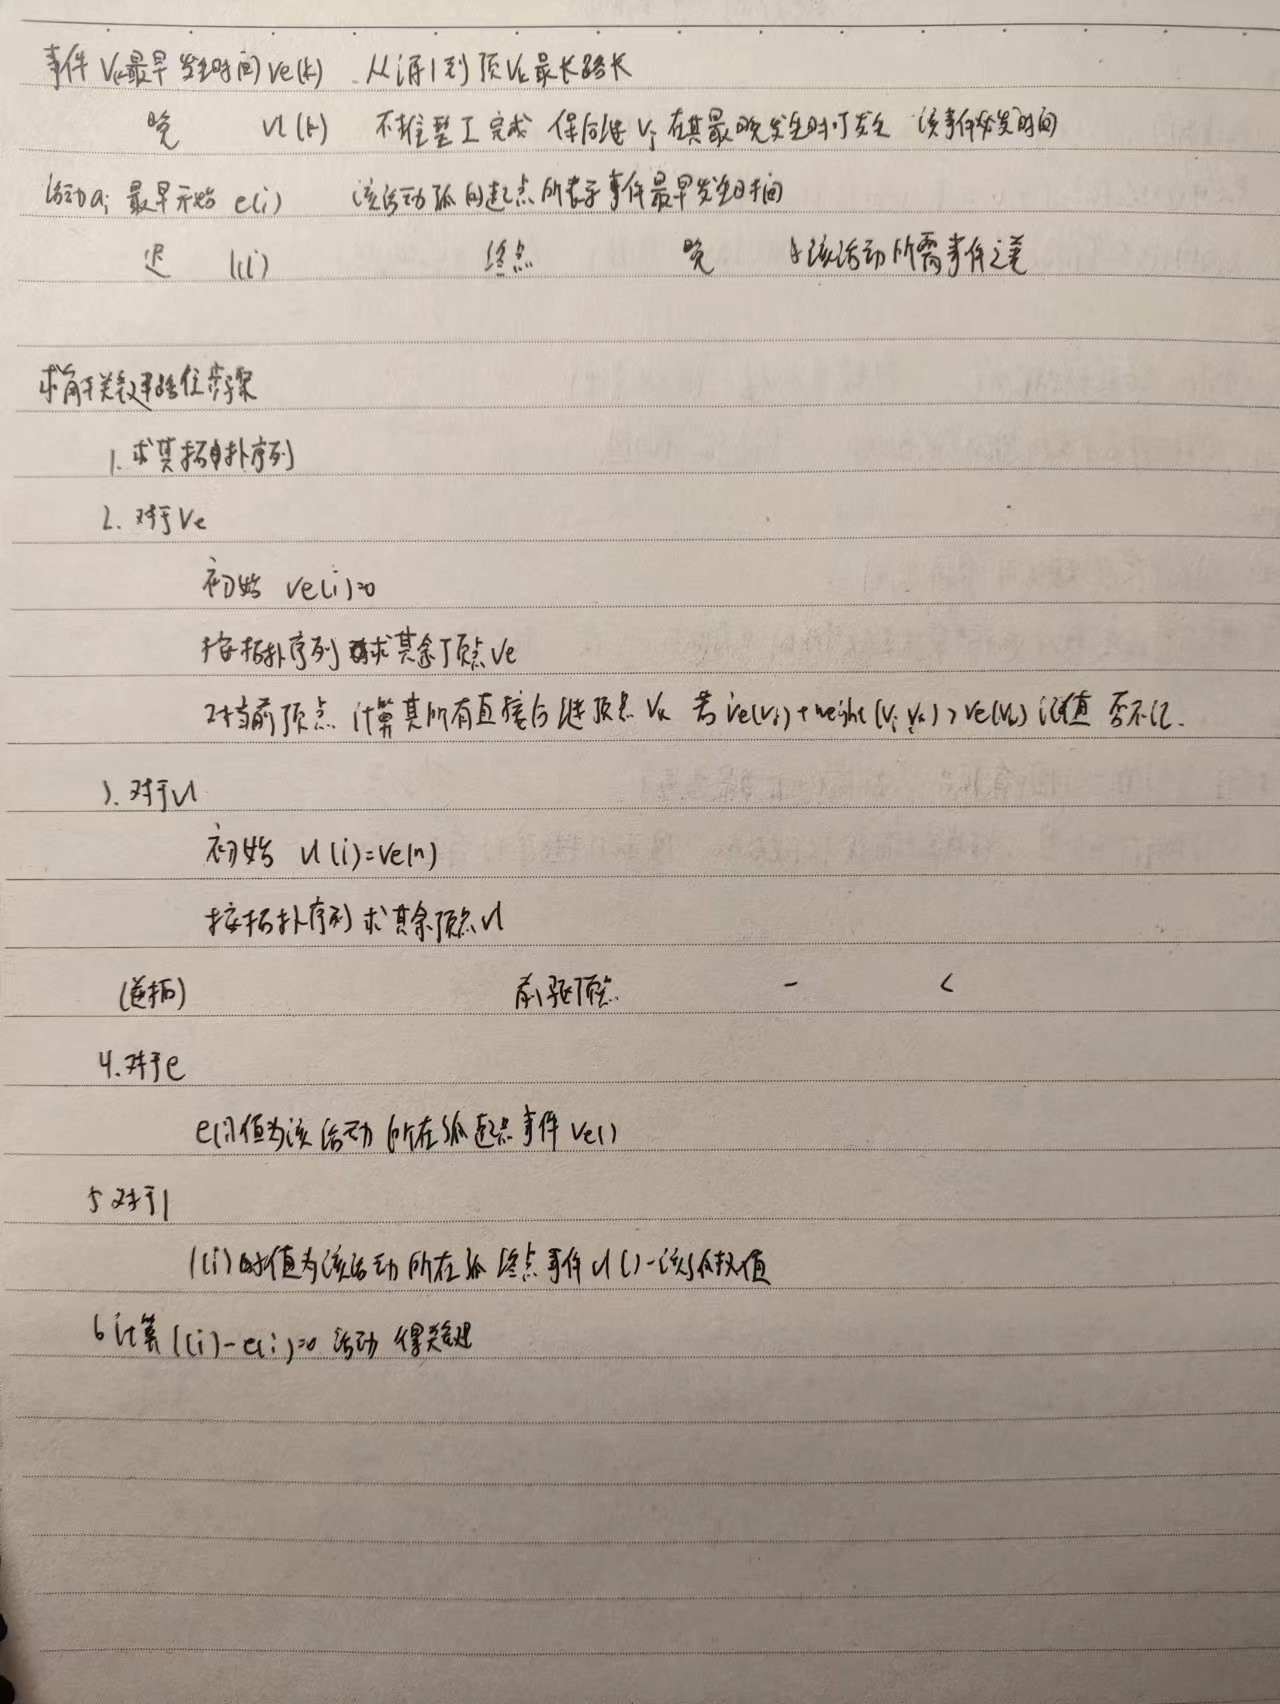 事件 Vk最早发生时间 ve(k) 从源1到顶Vk最长路长
晚 vl(k) 不推整工完成 保后继 Vj 在其最晚发生时可发生 该事件必发时间
活动ai 最早开始 e(i) 该活动弧的起点所表示事件最早发生时间
迟 l(i) 终点 晚 与该活动所需事件之差
求解关键路径步骤
1. 求其拓扑序列
2. 对于Ve
初始 ve(i)=0
按拓扑序列 求其余顶点Ve
对当前顶点 计算其所有直接后继顶点 Vk 若 ve(vi)+weight(vi,vk)>ve(vk) 记值 否不记.
3. 对于vl
初始 vl(i)=ve(n)
按拓扑序列 求其余顶点vl
(逆拓) 前驱顶点 - <
4. 对于e
e(i)值为该活动所在弧起点事件ve()
5 对于l
l(i)的值为该活动所在弧终点事件vl()-该弧权值
6 计算 l(i)-e(i)=0 活动 得关键